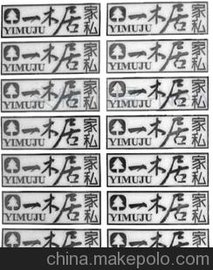 一木居家私 一木居家私
YIMUJU YIMUJU
一木居家私 一木居家私
YIMUJU YIMUJU
一木居家私 一木居家私
YIMUJU YIMUJU
一木居家私 一木居家私
YIMUJU YIMUJU
一木居家私 一木居家私
YIMUJU YIMUJU
一木居家私 一木居家私
YIMUJU YIMUJU
一木居家私 一木居家私
YIMUJU YIMUJU
china.makepolo.com